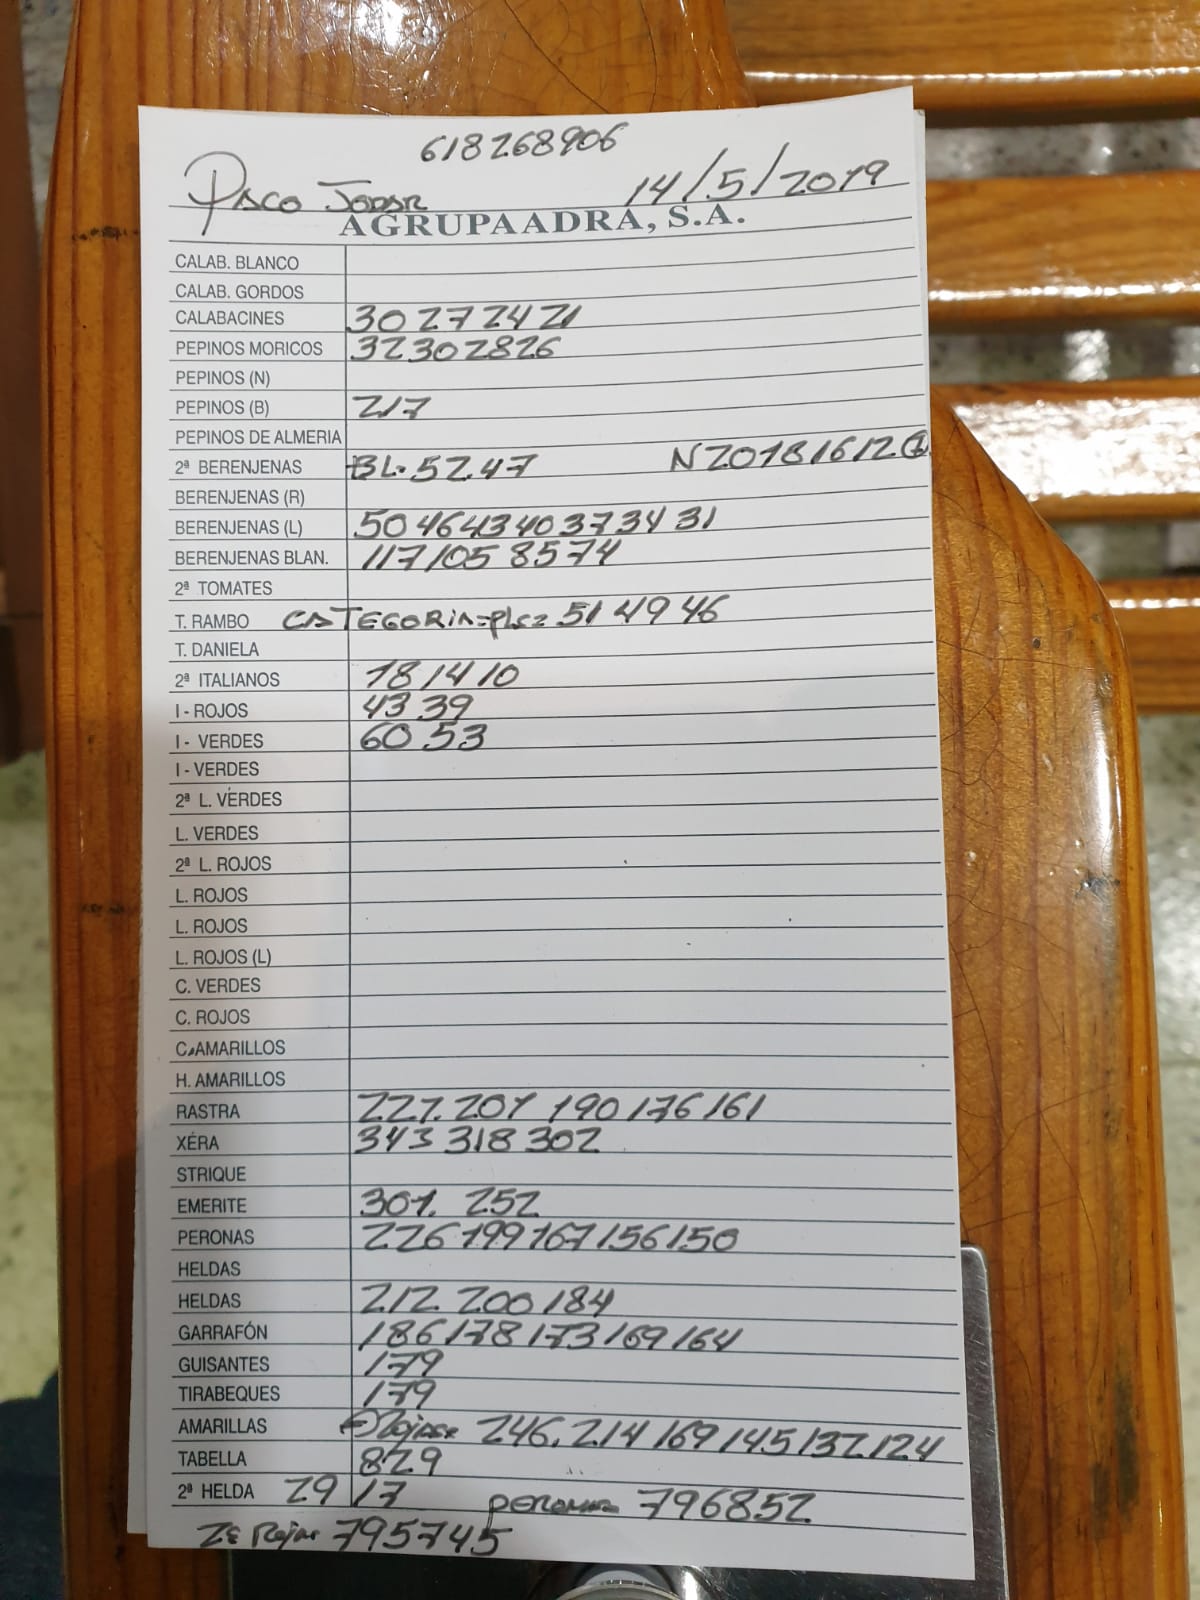 618268906
PACO JODAR 14/5/2019
AGRUPAADRA, S.A.
CALAB. BLANCO
CALAB. GORDOS
CALABACINES 30 27 24 21
PEPINOS MORICOS 32 30 28 26
PEPINOS (N)
PEPINOS (B) 217
PEPINOS DE ALMERIA
2ª BERENJENAS BL. 52.47 N 20 18 16 12
BERENJENAS (R)
BERENJENAS (L) 50 46 43 40 37 34 31
BERENJENAS BLAN. 117 105 85 74
2ª TOMATES
T. RAMBO CATEGORIA 51 49 46
T. DANIELA
2ª ITALIANOS 18 14 10
I - ROJOS 43 39
I - VERDES 60 53
I - VERDES
2ª L. VERDES
L. VERDES
2ª L. ROJOS
L. ROJOS
L. ROJOS
L. ROJOS (L)
C. VERDES
C. ROJOS
C. AMARILLOS
H. AMARILLOS
RASTRA 227. 201 190 176 161
XÉRA 343 318 302
STRIQUE
EMERITE 301. 252
PERONAS 226 199 167 156 150
HELDAS
HELDAS 212. 200 184
GARRAFÓN 186 178 173 169 164
GUISANTES 179
TIRABEQUES 179
AMARILLAS 246. 214 169 145 132 124
TABELLA 829
2ª HELDA 29 17 79 68 52
Rojas 79 57 45